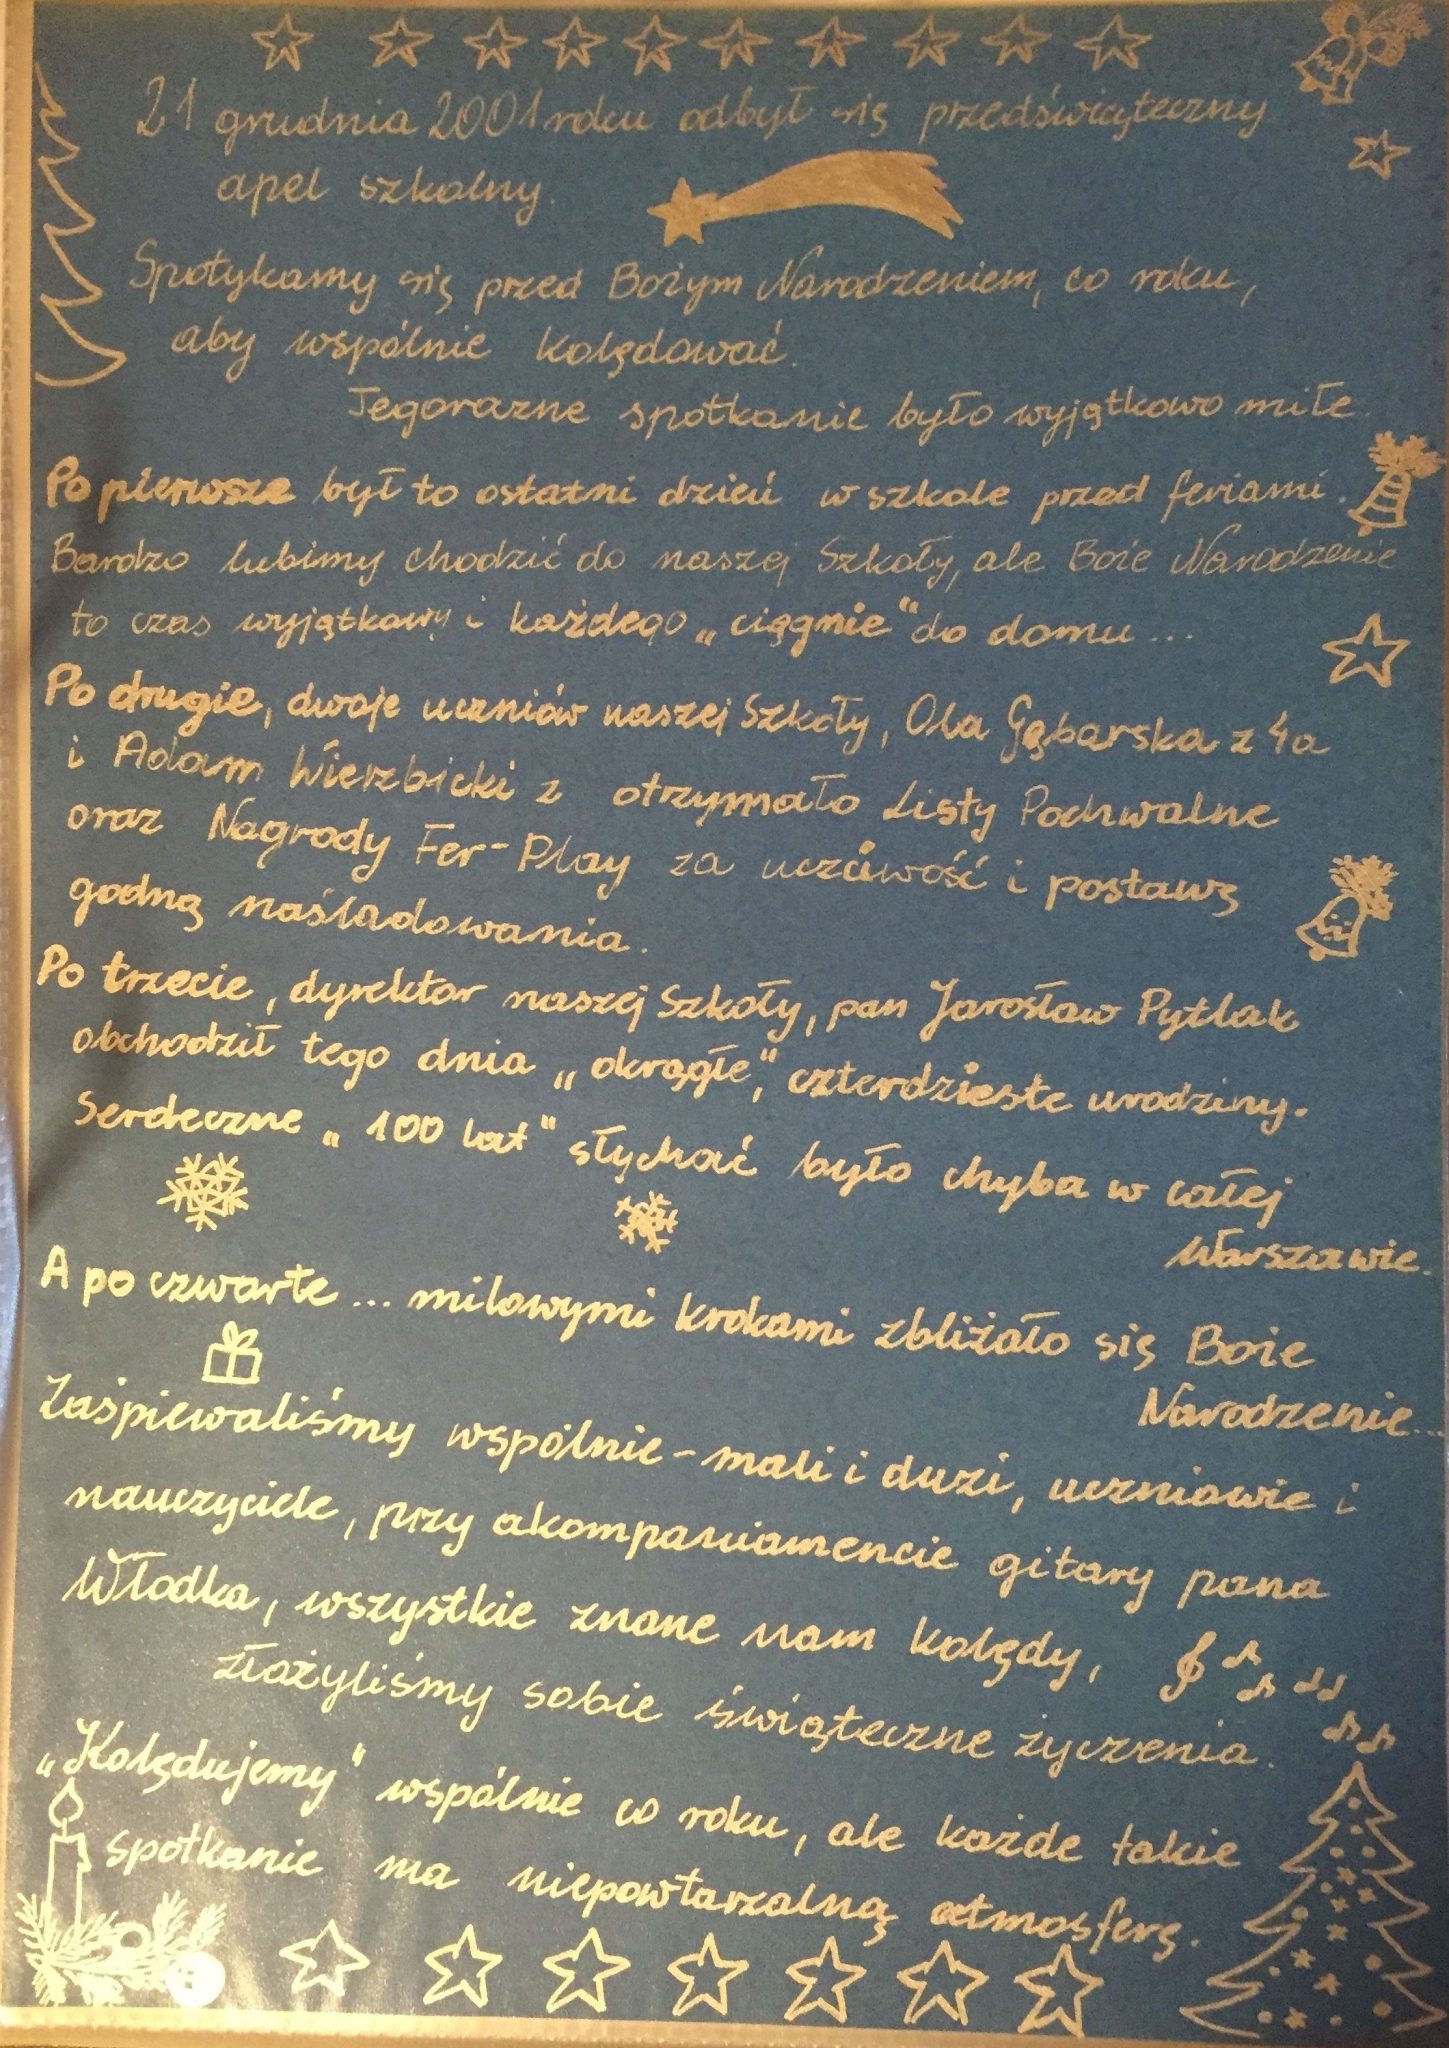 21 grudnia 2001 roku odbył się przedświąteczny
apel szkolny.
Spotykamy się przed Bożym Narodzeniem, co roku,
aby wspólnie kolędować.
Tegorazne spotkanie było wyjątkowo miłe.
Po pierwsze był to ostatni dzień w szkole przed feriami.
Bardzo lubimy chodzić do naszej Szkoły, ale Boże Narodzenie
to czas wyjątkowy i każdego „ciągnie" do domu...
Po drugie, dwoje uczniów naszej Szkoły, Ola Gębarska z 4a
i Adam Wierzbicki z otrzymało Listy Pochwalne
oraz Nagrody Fer-Play za uczciwość i postawę
godną naśladowania.
Po trzecie, dyrektor naszej Szkoły, pan Jarosław Pytlak
obchodził tego dnia „okrągłe," czterdzieste urodziny.
Serdeczne „100 lat" słychać było chyba w całej
Warszawie.
A po czwarte... milowymi krokami zbliżało się Boże
Narodzenie...
Zaśpiewaliśmy wspólnie - mali i duzi, uczniowie i
nauczyciele, przy akompaniamencie gitary pana
Włodka, wszystkie znane nam kolędy,
złożyliśmy sobie świąteczne życzenia.
„Kolędujemy" wspólnie co roku, ale każde takie
spotkanie ma niepowtarzalną atmosferę.